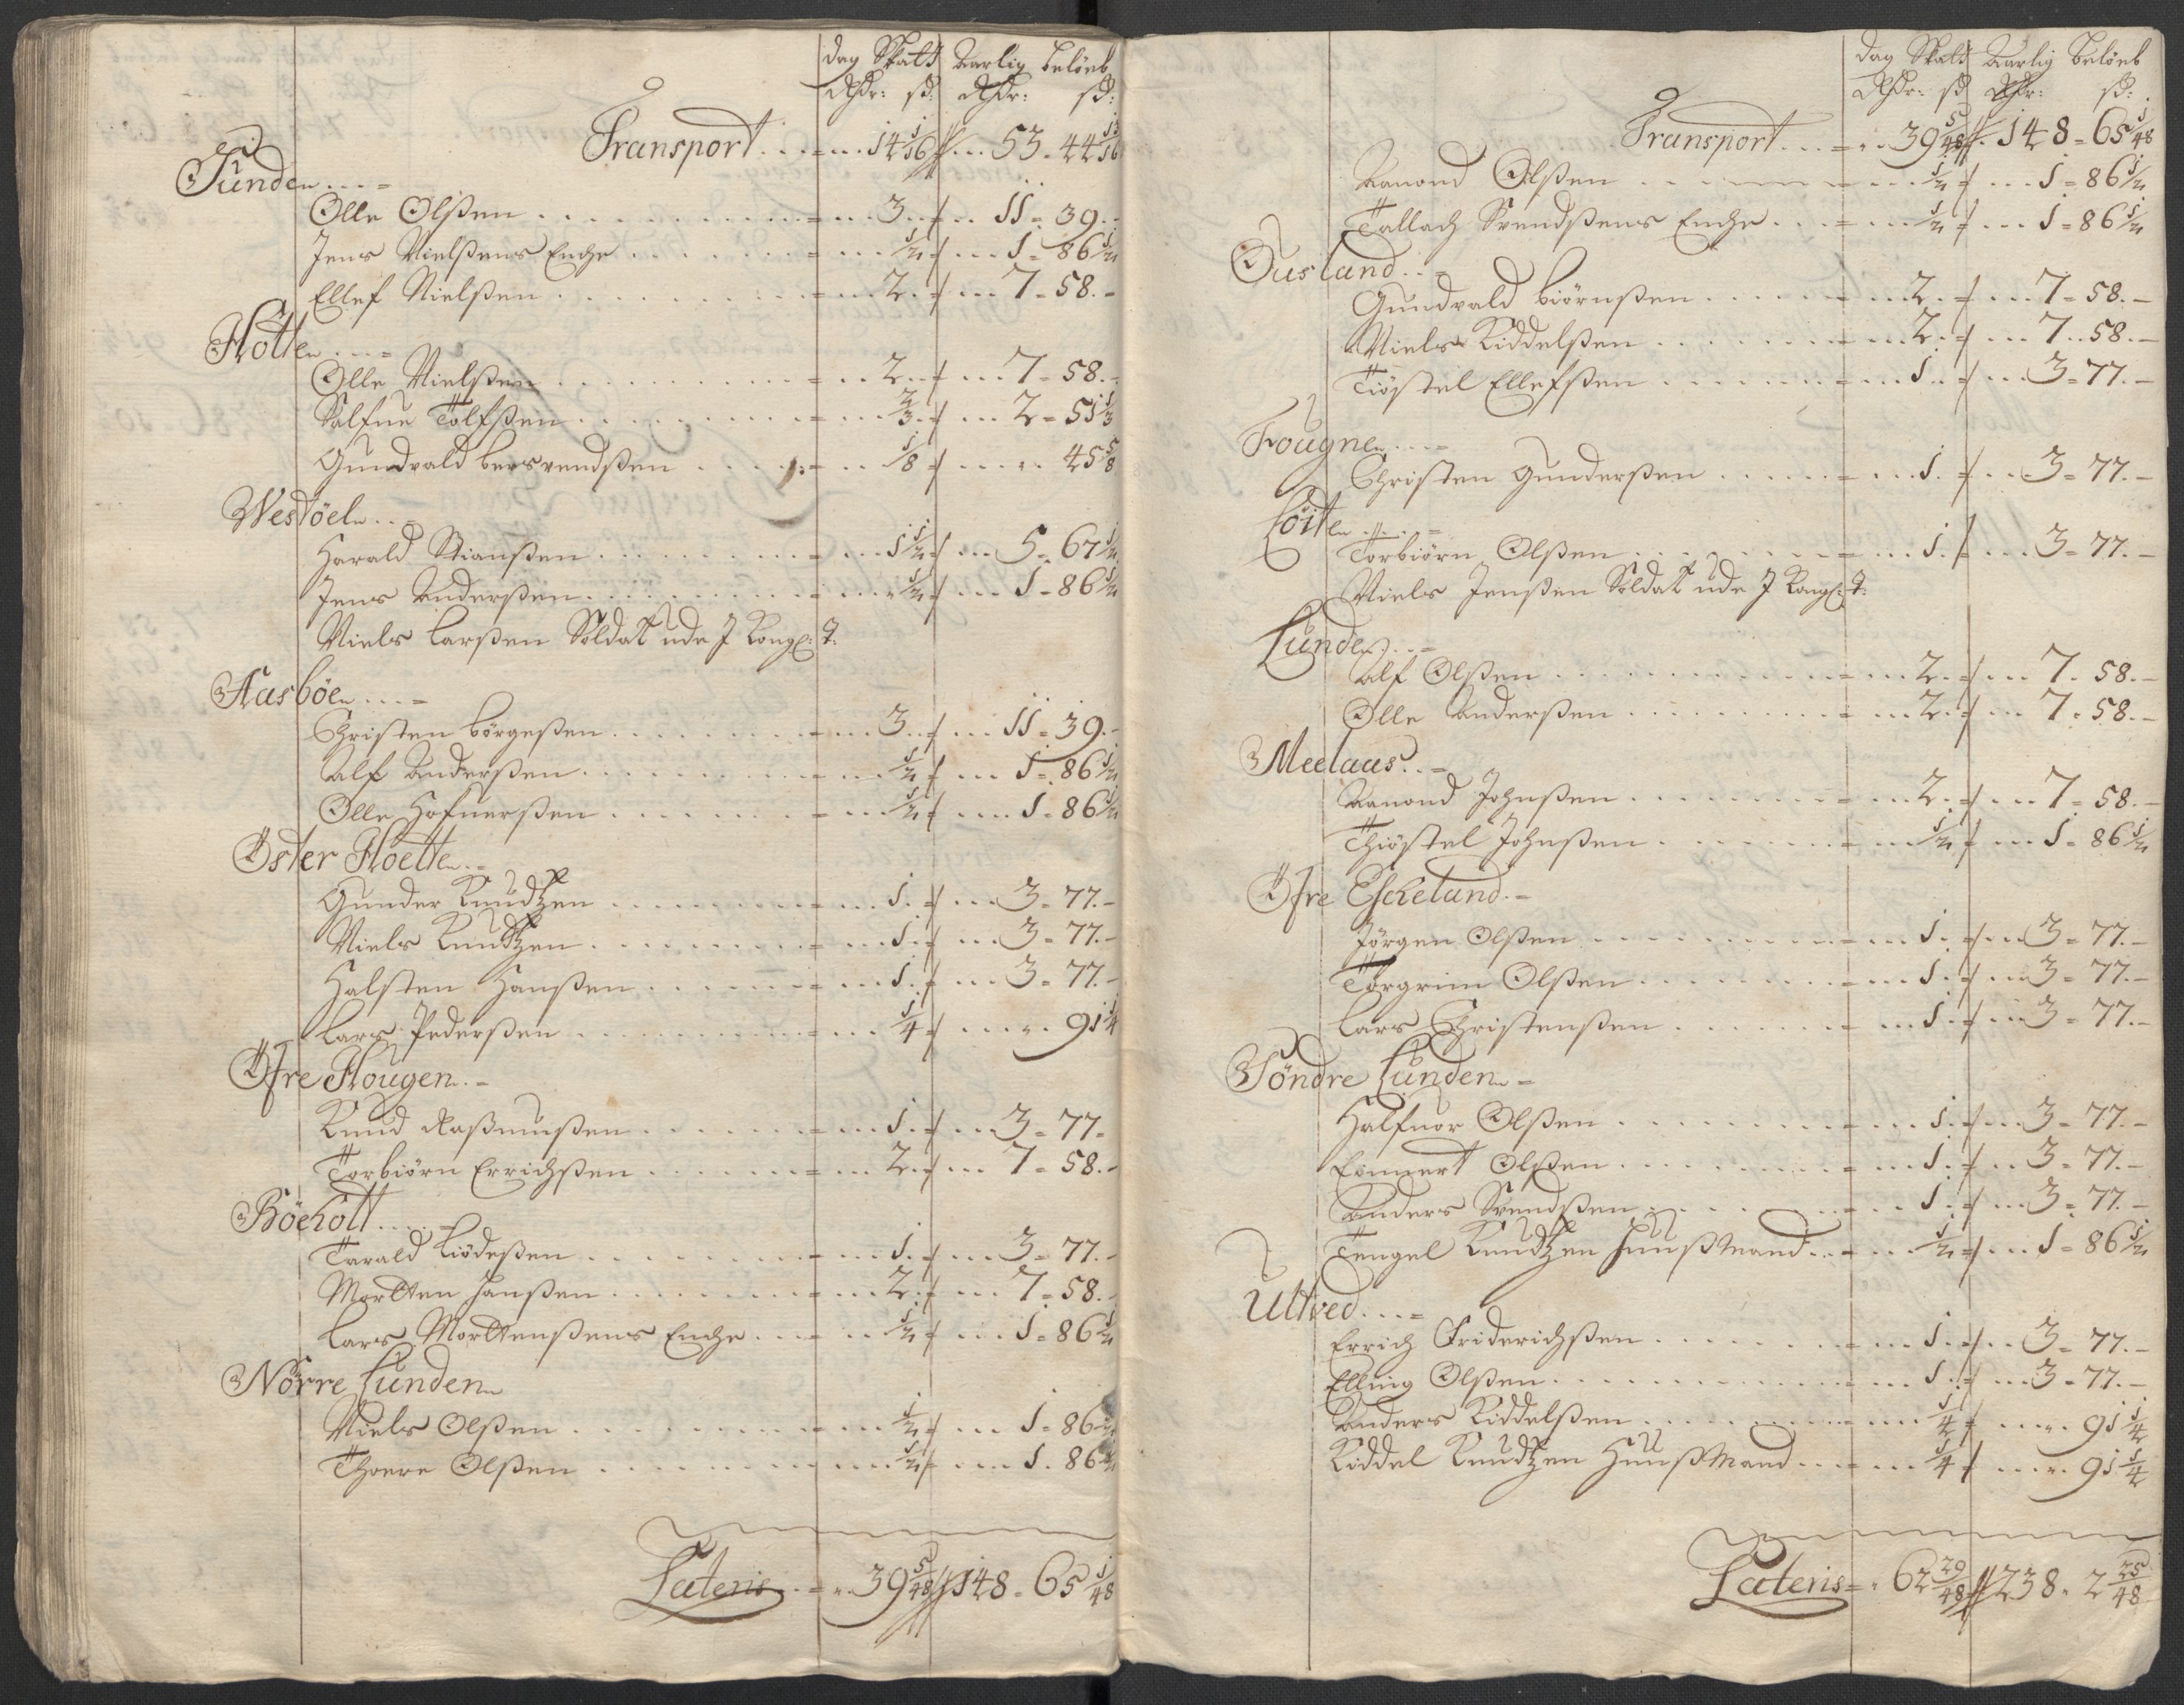 Dag Skatt Aarlig Beløeb
Rdr: sd: Rdr: sd:
Transport . . . = . . . 14 1/16 // . . . 53 = 44 13/16
Sünden . . . =
Olle Olßen . . . = . . . 3 . . . 11 = 39. -
Jens Nielßens Enche . . . = . . . 1/2 . . . 1 = 86 1/2
Ellef Nielßen . . . = . . . 2 . . . 7 = 58. -
Hotten . . . =
Olle Nielßen . . . = . . . 2 . . . 7 = 58. -
Salfue Tolfßen . . . = . . . 2/3 . . . 2 = 51 1/3
Gundvald Bersvendßen . . . = . . . 1/8 . . . 45 5/8
Westöel . . .
Harald Stianßen . . . = . . . 1 1/2 . . . 5 = 67 1/2
Jens Anderßen . . . = . . . 1/2 . . . 1 = 86 1/2
Niels Larßen Soldat ude J Kongl: T:
Aasböe . . . =
Christen Börgeßen . . . = . . . 3 . . . 11 = 39. -
Alf Anderßen . . . = . . . 1/2 . . . 1 = 86 1/2
Olle Hofuerßen . . . = . . . 1/2 . . . 1 = 86 1/2
Öster Hoette . =
Gunder Knudtzen . . . = . . . 1 . . . 3 = 77. -
Niels Knudtzen . . . = . . . 1 . . . 3 = 77. -
Halsten Hanßen . . . = . . . 1 . . . 3 = 77. -
Lars Pederßen . . . = . . . 1/4 . . . 91 1/4
Öfre Hougen . =
Knud Raßmußen . . . = . . . 1 . . . 3 = 77 =
Torbiörn Errichßen . . . = . . . 2 . . . 7 = 58. -
Böeholt . . . =
Tarald Liödeßen . . . = . . . 1 . . . 3 = 77. -
Mortten Hanßen . . . = . . . 2 . . . 7 = 58. -
Lars Morttenßens Enche . . . = . . . 1/2 . . . 1 = 86 1/2
Nörre Lunden
Niels Olßen . . . = . . . 1/2 . . . 1 = 86 1/2
Thore Olßen . . . = . . . 1/2 . . . 1. 86 1/2
Lateris . . = . . 39 5/48 // 148 = 65 1/48
Dag Skatt Aarlig Beløeb
Rdr: sd Rdr: sd:
Transport . . . = . . 39 5/48 // . 148 = 65 1/48
Aanond Olßen . . . = . . . 1/2 . . . 1 = 86 1/2
Tallach Svendßens Enche . . . = . . . 1/2 . . . 1 = 86 1/2
Ousland . . =
Gundvald Biörnßen . . . = . . . 2 . . . 7 = 58. -
Niels Kiddelßen . . . = . . . 2 . . . 7 . . 58. -
Tiöstel Ellefßen . . . = . . . 1 . . . 3 = 77. -
Fougne . . . =
Christen Gunderßen . . . = . . . 1 . . . 3 = 77. -
Löite . . . =
Torbiörn Olßen . . . = . . . 1 . . . 3 = 77. -
Niels Jenßen Soldat ude J Kongl: T:
Lunden . . =
Alf Olßen . . . = . . . 2 . . . 7 . 58. -
Olle Anderßen . . . = . . . 2 . . . 7 = 58. -
Meelaas . . =
Aanond Johnßen . . . = . . . 2 . . . 7 = 58. -
Thiöstel Johnßen . . . = . . . 1/2 . . . 1 = 86 1/2
Öfre Escheland . =
Jörgen Olßen . . . = . . . 1 . . . 3 = 77. -
Torgrim Olßen . . . = . . . 1 . . . 3 = 77. -
Lars Christenßen . . . = . . . 1 . . . 3 = 77. -
Söndre Lunden =
Halfuor Olßen . . . = . . . 1 . . . 3 = 77. -
Emmert Olßen . . . = . . . 1 . . . 3 = 77. -
Anders Svendßen . . . = . . . 1 . . . 3 = 77. -
Tengel Knudtzen Huußmand . . . = . . . 1/2 . . . 1 = 86 1/2
Ultved . . . =
Errich Friderichßen . . . = . . . 1 . . . 3 = 77. -
Elling Olßen . . . = . . . 1 . . . 3 = 77. -
Anders Kiddelßen . . . = . . . 1/4 . . . 91 1/4
Kiddel Knudtzen Huußmand . . . = . . . 1/4 . . . 91 1/4
Lateris = . 62 29/48 // 238 . 2 25/48